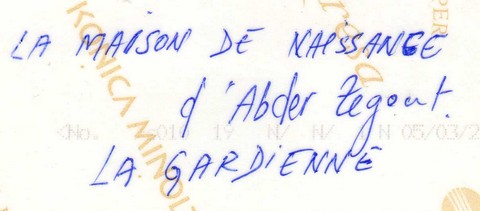 LA MAISON DE NAISSANCE
d'Abder Zegout.
LA GARDIENNE
KONICA MINOL
PER
<No. -01 19 N/ N/ N 05/03/2